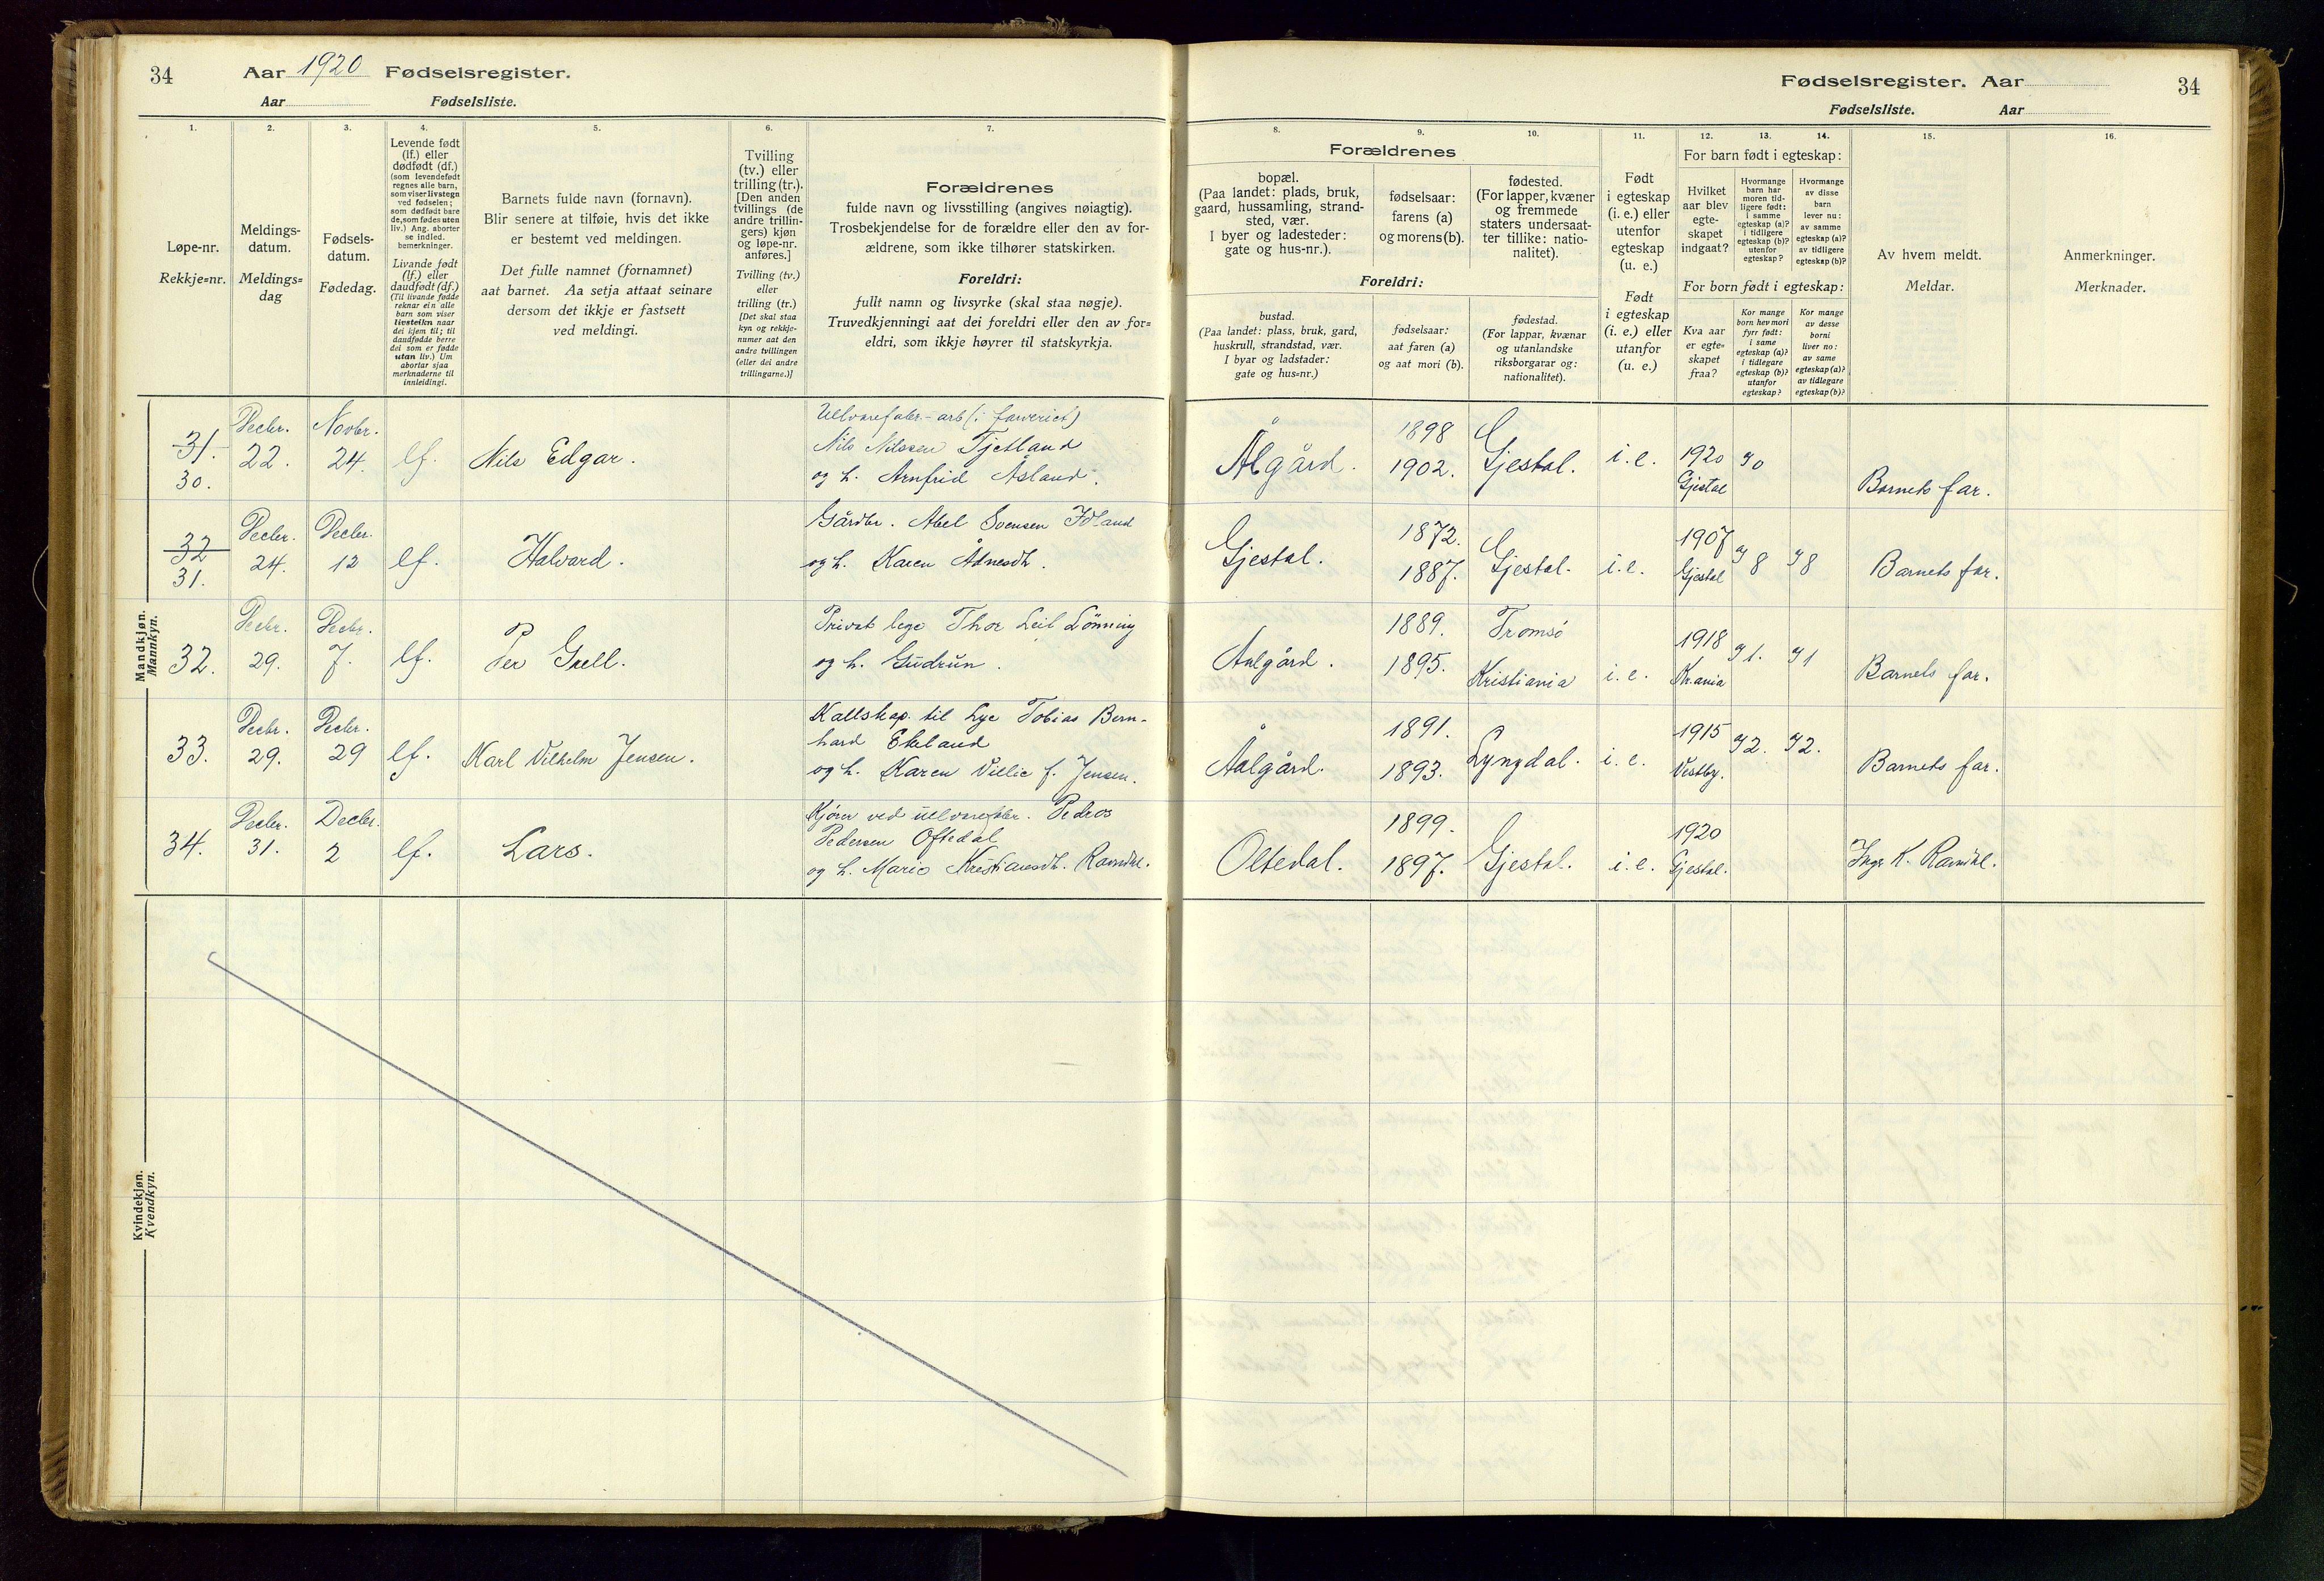 34 Aar 1920 Fødselsregister.
Aar Fødselsliste.
Fødselsregister. Aar 34
Fødselsliste. Aar
1. 2. 3. 4. 5. 6. 7.
Løpe-nr.
Rekkje=nr.
Meldings-
datum.
Meldings=
dag
Fødsels-
datum.
Fødedag.
Levende født
(lf.) eller
dødfødt (df.)
(som levendefødt
regnes alle barn,
som viser livstegn
ved fødselen;
som dødfødt bare
de, som fødes uten
liv.) Ang. aborter
se indled.
bemerkninger.
Livande født
(lf.) eller
daudfødt (df.)
(Til livande fødde
reknar ein alle
barn som viser
livsteikn naar
dei kjem til; til
daudfødde berre
dei som er fødde
utan liv.) Um
abortar sjaa
merknaderne til
innleidingi.
Barnets fulde navn (fornavn).
Blir senere at tilføie, hvis det ikke
er bestemt ved meldingen.
Det fulle namnet (fornamnet)
aat barnet. Aa setja attaat seinare
dersom det ikkje er fastsett
ved meldingi.
Tvilling
(tv.) eller
trilling (tr.).
[Den anden
tvillings (de
andre trillin-
gers) kjøn
og løpe-nr.
anføres.]
Tvilling (tv.)
eller
trilling (tr.)
[Det skal staa
kyn og rekkje-
numer aat den
andre tvillingen
(eller dei andre
trillingarne.)]
Forældrenes
fulde navn og livsstilling (angives nøiagtig).
Trosbekjendelse for de forældre eller den av for-
ældrene, som ikke tilhører statskirken.
Foreldri:
fullt namn og livsyrke (skal staa nøgje).
Truvedkjenningi aat dei foreldri eller den av for=
eldri, som ikkje høyrer til statskyrkja.
8. 9. 10. 11. 12. 13. 14. 15. 16.
Forældrenes
bopæl.
(Paa landet: plads, bruk,
gaard, hussamling, strand-
sted, vær.
I byer og ladesteder:
gate og hus-nr.).
fødselsaar:
farens (a)
og morens (b).
fødested.
(For lapper, kvæner
og fremmede
staters undersaat-
ter tillike: natio-
nalitet).
Foreldri:
bustad.
(Paa landet: plass, bruk, gard,
huskrull, strandstad, vær.
I byar og ladstader:
gate og hus=nr.)
fødselsaar:
aat faren (a)
og aat mori (b).
fødestad.
(For lappar, kvænar
og utanlandske
riksborgarar og:
nationalitet).
Født
i egteskap
(i. e.) eller
utenfor
egteskap
(u. e.)
Født
i egteskap
(i. e.) eller
utanfor
(u. e.)
For barn født i egteskap:
Hvilket
aar blev
egte-
skapet
indgaat?
Hvormange
barn har
moren tid-
ligere født:
i samme
egteskap (a)?
i tidligere
egteskap (b)?
utenfor
egteskap?
Hvormange
av disse
barn
lever nu:
av samme
egteskap (a)?
av tidligere
egteskap (b)?
For born født i egteskap:
Kva aar
er egte=
skapet
fraa?
Kor mange
born hev mori
fyrr født:
i same
egteskap (a)?
i tidlegare
egteskap (b)?
utanfor
egteskap?
Kor mange
av desse
borni
liver no:
av same
egteskap (a)?
av tidlegare
egteskap (b)?
Av hvem meldt.
Meldar.
Anmerkninger.
Merknader.
Mandkjøn.
Mannkyn.
31. 30. Decbr. 22. Novbr. 24. lf. Nils Edgar.
Uldvarefabr.-arb (i farveriet)
Nils Nilssen Tjetland
og h. Arnfrid Åsland.
Ålgård. 1898 1902. Gjestal. i. e. 1920 Gjestal 0 Barnets far.
32 31. Decbr. 24. Decbr. 12 lf. Halvard.
Gårdbr. Abel Svensen Idland
og h. Karen Ådnesdt.
Gjestal. 1872. 1887. Gjestal. i. e. 1907 Gjestal 8 8 Barnets far.
32. Decbr. 29. Decbr. 7. lf. Per Grell.
Privat læge Thor Leif Lönning
og h. Gudrun.
Aalgård. 1889. 1895. Tromsö Kristiania i. e. 1918 Kr.ania 1. 1 Barnets far.
33. Decbr. 29. Decbr. 29 lf. Karl Vilhelm Jensen.
Kallskap. til Lye Tobias Bern-
hard Ekeland
og h. Karen Villie f. Jensen.
Ålgård. 1891. 1893. Lyngdal. i. e. 1915 Vestby. 2. 2. Barnets far.
34. Decbr. 31. Decbr. 2 lf. Lars.
Kjörer ved uldvarefabr. Pedros
Pedersen Oftedal
og h. Marie Kristiansdt. Ravndal.
Oltedal. 1899. 1897. Gjestal. i. e. 1920 Gjestal. Inge K. Ravndal.
Kvindekjøn.
Kvendkyn.